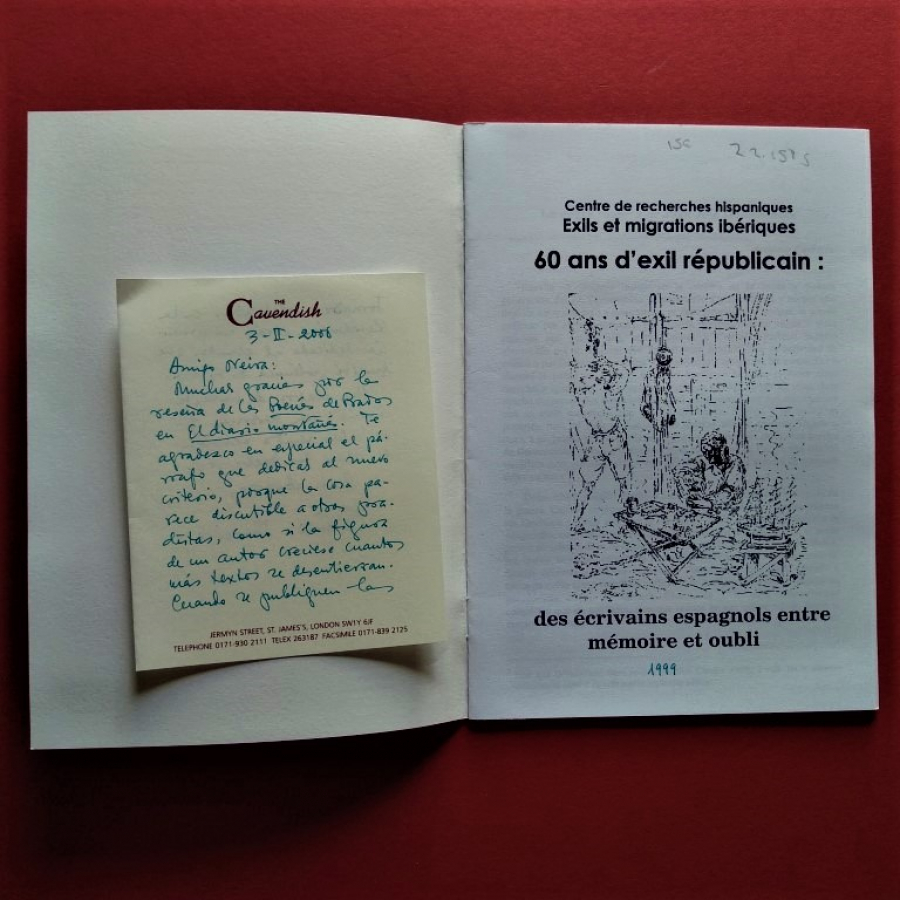 THE
Cavendish
3-II-2006
Amigo Neira:
Muchas gracias por la
reseña de las Poesías de Prados
en El diario montañés. Te
agradezco en especial el pá-
rrafo que dedicas al nuevo
criterio, porque la cosa pa-
rece discutible a otros pra-
distas, como si la figura
de un autor creciese cuantos
más textos se desentierran.
Cuando se publiquen las
JERMYN STREET, ST. JAMES'S, LONDON SW1Y 6JF
TELEPHONE 0171-930 2111 TELEX 263187 FACSIMILE 0171-839 2125
Centre de recherches hispaniques
Exils et migrations ibériques
60 ans d'exil républicain :
des écrivains espagnols entre
mémoire et oubli
1999